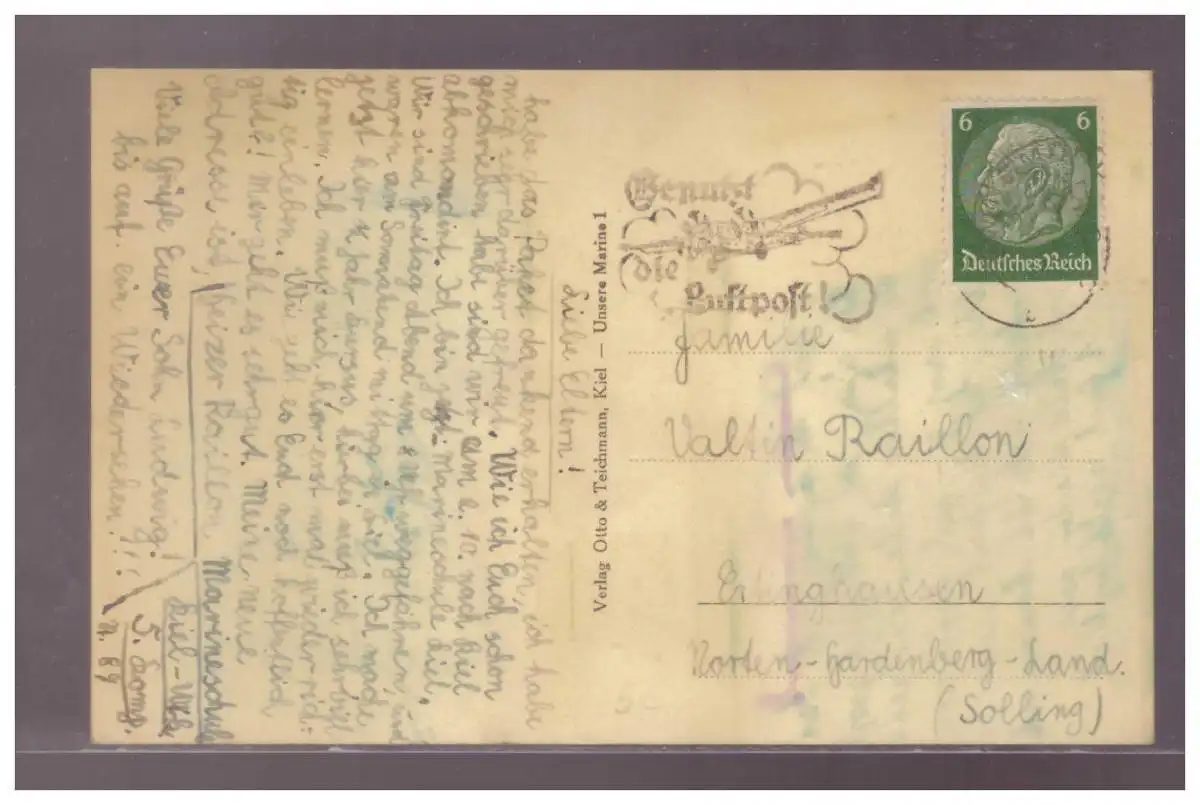 Liebe Eltern!
habe das Paket dankend erhalten, ich habe
mich sehr darüber gefreut. Wie ich Euch schon
geschrieben habe sind wir am 2. 10. nach Kiel
abkomandirt. Ich bin jetzt Marineschule Kiel.
Wir sind Freitag Abend um 8 Uhr weggefahren, und
waren am Sonnabend mittag in Kiel. Ich mache
jetzt hier ¼ Jahr Kursus, hirbei muß ich sehr viel
lernen. Ich muß mich hir erst mal wieder rich-
tig einleben. Wie geht es Euch noch hoffentlich
gut?! Mir geht es sehr gut. Meine neue
Adresse ist, Heizer Raillon. Marineschule
Kiel-Wik
5. Komp.
Viele Grüße Euer Sohn Ludwig!
bis auf ein Wiedersehen!!
Verlag Otto & Teichmann, Kiel — Unsere Marine 1
6 6
Deutsches Reich
Benutzt
die
Luftpost!
Familie
Valtin Raillon
Ertinghausen
Norten-Hardenberg-Land.
(Solling)